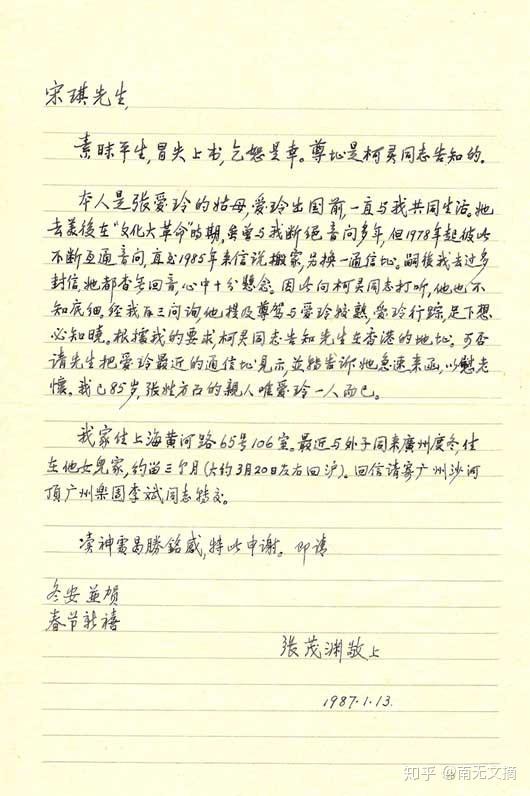 宋琪先生，
素昧平生，冒失上书，乞恕是幸。尊址是柯灵同志告知的。
本人是张爱玲的姑母，爱玲出国前，一直与我共同生活。她
去美後在“文化大革命”时期，虽曾与我断绝音问多年，但1978年起彼此
不断互通音问，直至1985年来信说搬家，另换一通信址。嗣後我去过多
封信，她都杳无回音，心中十分悬念。因此向柯灵同志打听，他也不
知底细，经我再三问询他提及尊驾与爱玲较熟，爱玲行踪，足下想
必知晓。根据我的要求柯灵同志告知先生在香港的地址。可否
请先生把爱玲最近的通信址见示，並转告诉她急速来函，以慰老
懷。我已85岁，张姓方面的親人唯爱玲一人而已。
我家住上海黄河路65号106室。最近与外子同来廣州度冬住
在他女兒家，约留三个月(大约3月20日左右回沪)。回信请寄广州沙河
顶广州乐团李斌同志转交。
渎神之处曷勝銘感，特此申谢。即请
冬安並贺
春节新禧
张茂渊敬上
1987.1.13.
知乎 @南无文摘